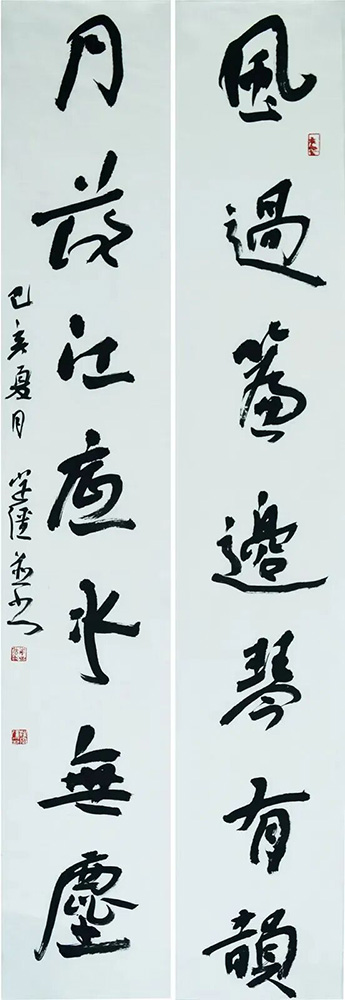 風過簾邊琴有韻
月落江底水無塵
己亥夏月